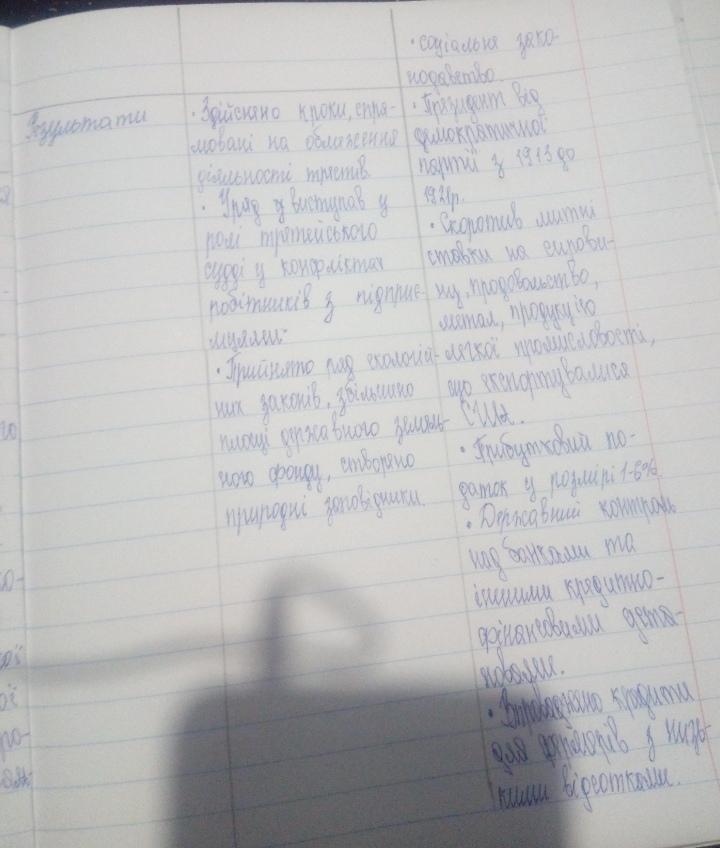 • соціальне зако-
нодавство.
Результати
• Здійснено кроки, спря-
мовані на обмеження
діяльності трестів.
• Уряд виступав у
ролі третейського
судді у конфліктах
робітників з підприє-
мцями.
• Прийнято ряд екологій-
них законів, збільшено
площі державного земель-
ного фонду, створено
природні заповідники.
• Президент від
демократичної
партії з 1913 до
1921р.
• Скоротив митні
ставки на сирови-
ну, продовольство,
метал, продукцію
легкої промисловості,
що експортувалися
США.
• Прибутковий по-
даток у розмірі 1-6%
• Державний контроль
над банками та
іншими кредитно-
фінансовими уста-
новами.
• Впроваджено кредити
для фермерів з низь-
кими відсотками.